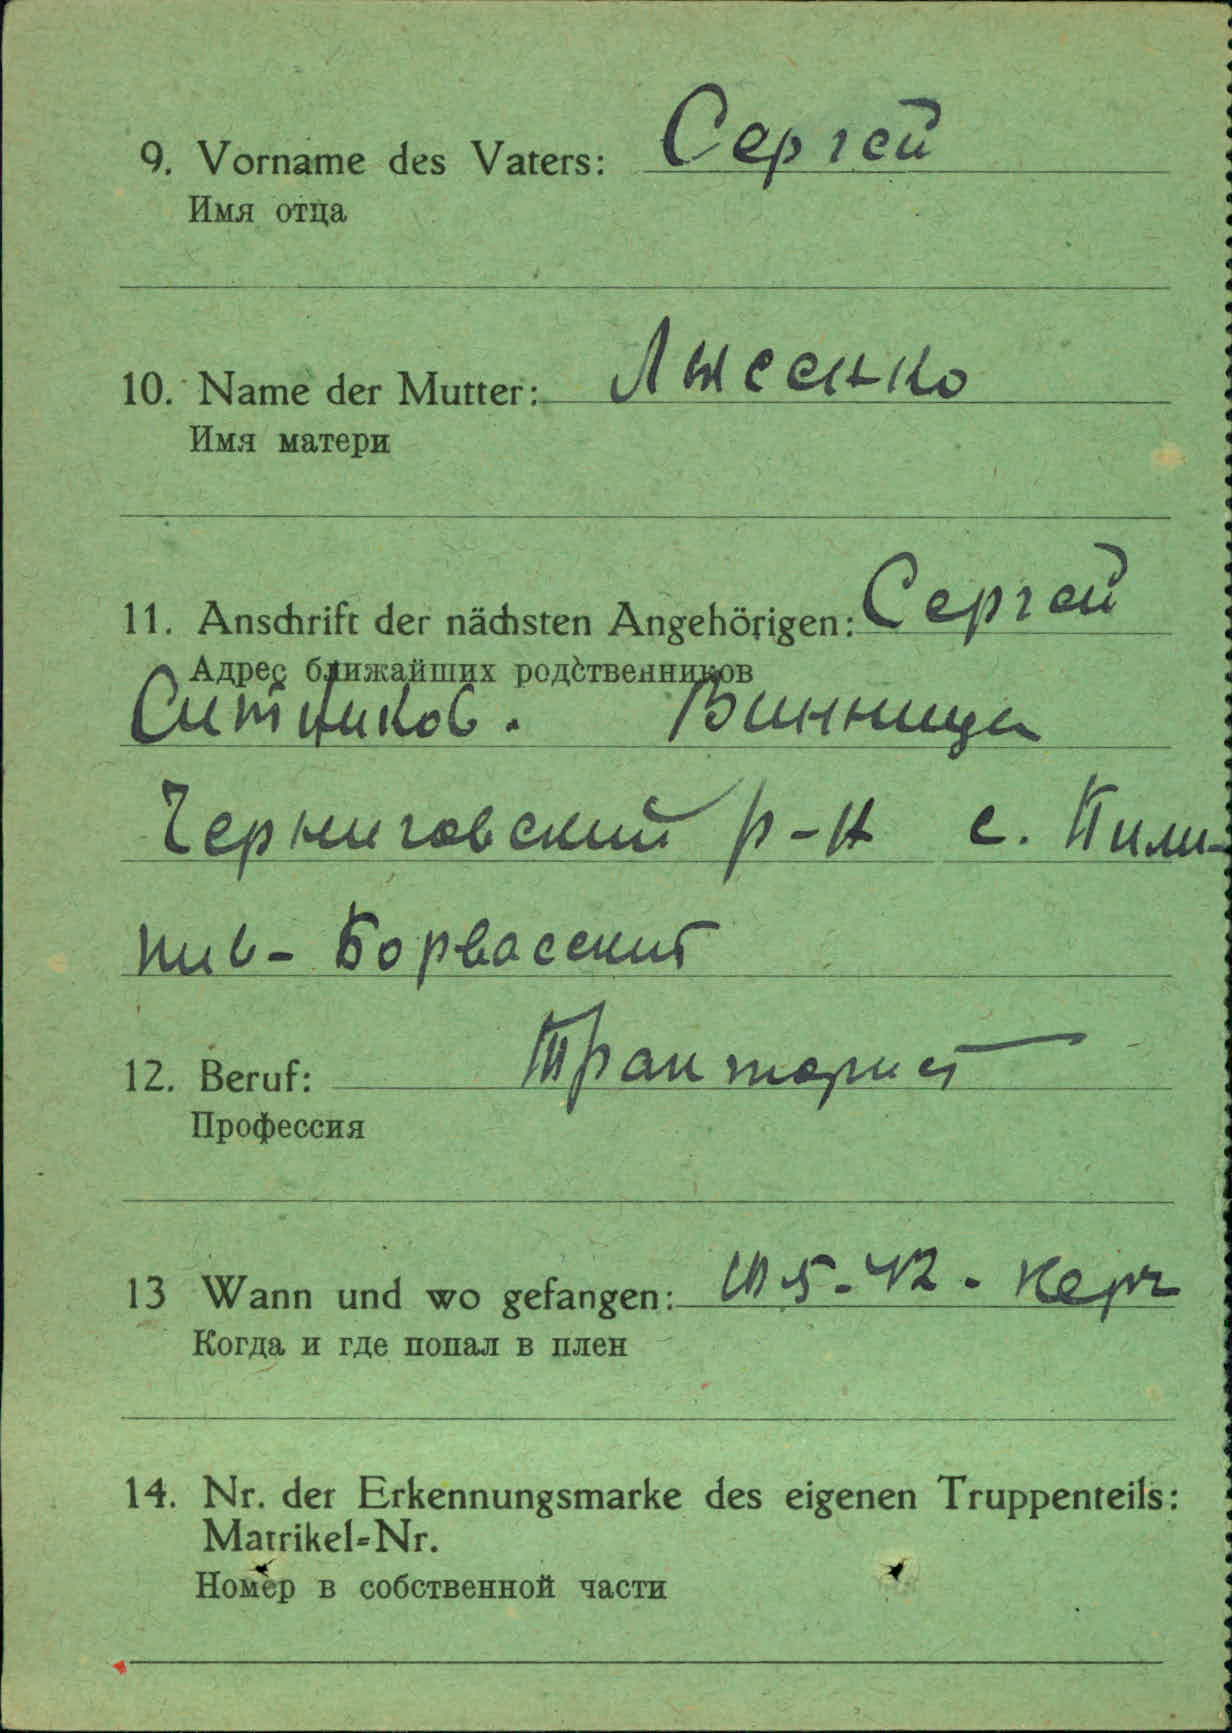 9. Vorname des Vaters: Сергей
Имя отца
10. Name der Mutter: Лысенко
Имя матери
11. Anschrift der nächsten Angehörigen: Сергей
Адрес ближайших родственников
Ситников. Винница
Черниговский р-н с. Пили-
пив-Борвасский
12. Beruf: Тракторист
Профессия
13 Wann und wo gefangen: 5-42. Керч
Когда и где попал в плен
14. Nr. der Erkennungsmarke des eigenen Truppenteils:
Matrikel-Nr.
Номер в собственной части